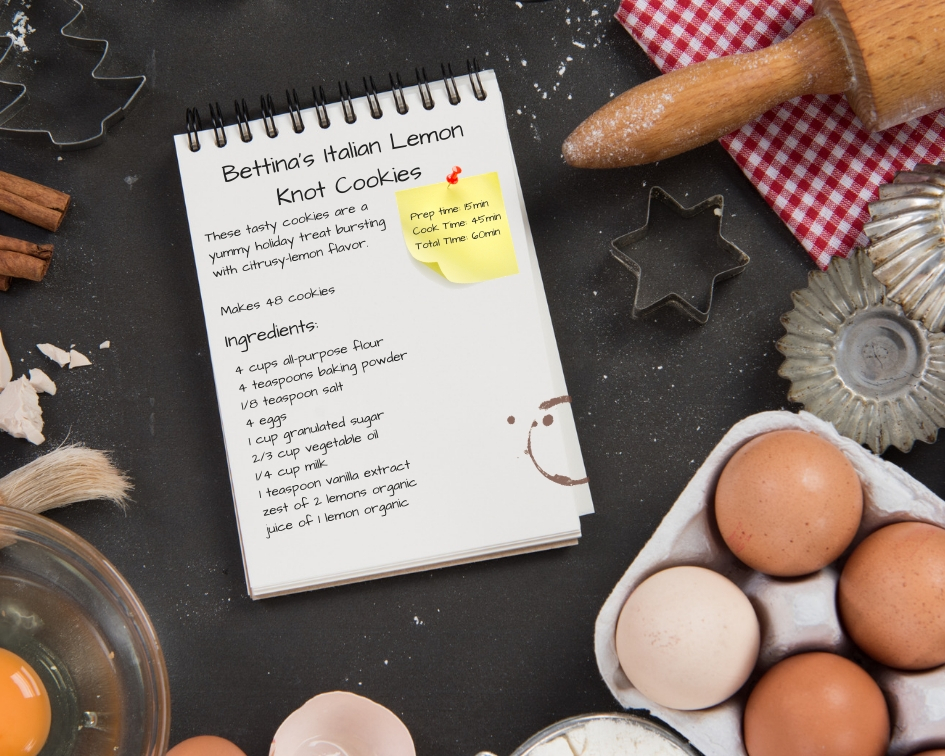 Bettina's Italian Lemon
Knot Cookies
These tasty cookies are a
yummy holiday treat bursting
with citrusy-lemon flavor.
Prep time: 15min
Cook Time: 45min
Total Time: 60min
Makes 48 cookies
Ingredients:
4 cups all-purpose flour
4 teaspoons baking powder
1/8 teaspoon salt
4 eggs
1 cup granulated sugar
2/3 cup vegetable oil
1/4 cup milk
1 teaspoon vanilla extract
zest of 2 lemons organic
juice of 1 lemon organic